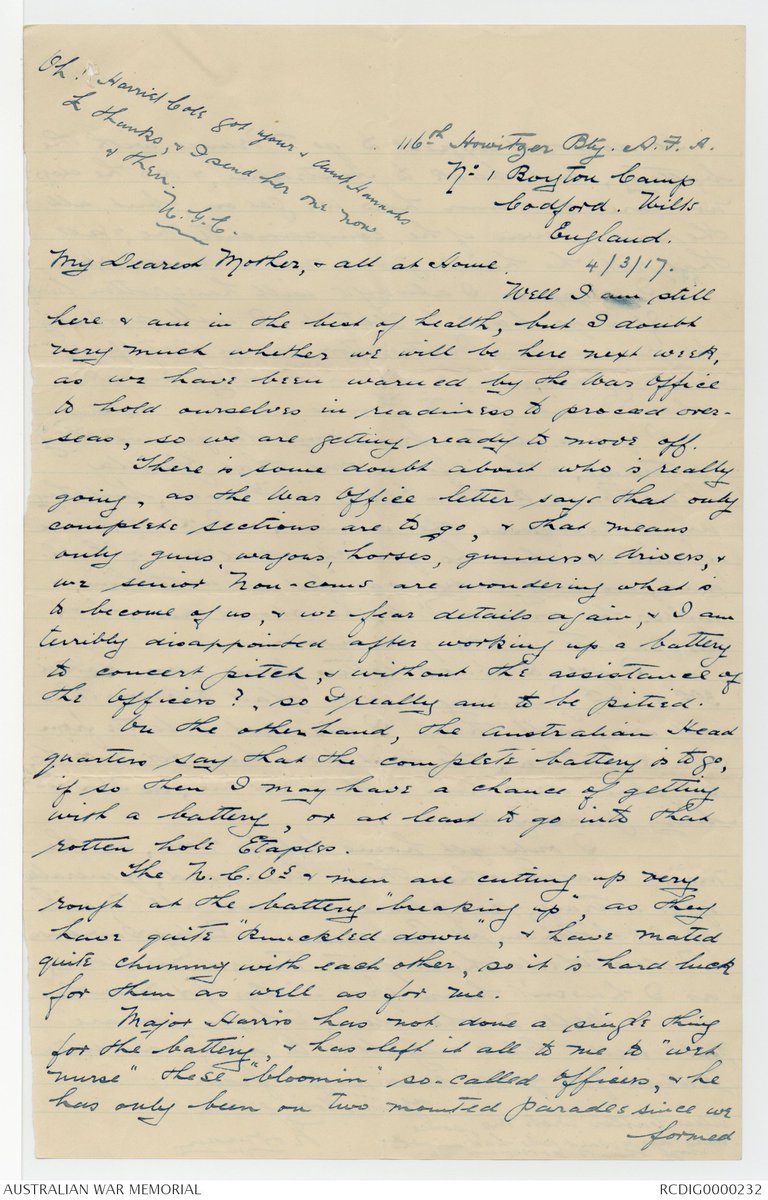 Oh! Harriet Cole got your & Aunt Hannahs
& thanks, & I send her one now
& then.
N.G.C.
116th Howitzer Bty. A.F.A.
No 1 Boyton Camp
Codford. Wilts
England.
4/3/17.
My Dearest Mother, & all at Home.
Well I am still
here & am in the best of health, but I doubt
very much whether we will be here next week,
as we have been warned by the War Office
to hold ourselves in readiness to proceed over-
seas, so we are getting ready to move off.
There is some doubt about who is really
going, as the War Office letter says that only
complete sections are to go, & that means
only guns, wagons, horses, gunners & drivers, &
we senior Non-coms are wondering what is
to become of us, & we fear details again, & I am
terribly disappointed after working up a battery
to concert pitch, & without the assistance of
the Officers?, so I really am to be pitied.
On the other hand, the Australian Head
quarters say that the complete battery is to go,
if so then I may have a chance of getting
with a battery, or at least to go into that
rotten hole Etaples.
The N.C.Os & men are cutting up very
rough at the battery "breaking up", as they
have quite "knuckled down", & have mated
quite chummy with each other, so it is hard luck
for them as well as for me.
Major Harris has not done a single thing
for the battery, & has left it all to me to "wet
nurse" these "bloomin" so-called Officers, & he
has only been on two mounted parades since we
formed
AUSTRALIAN WAR MEMORIAL
RCDIG0000232